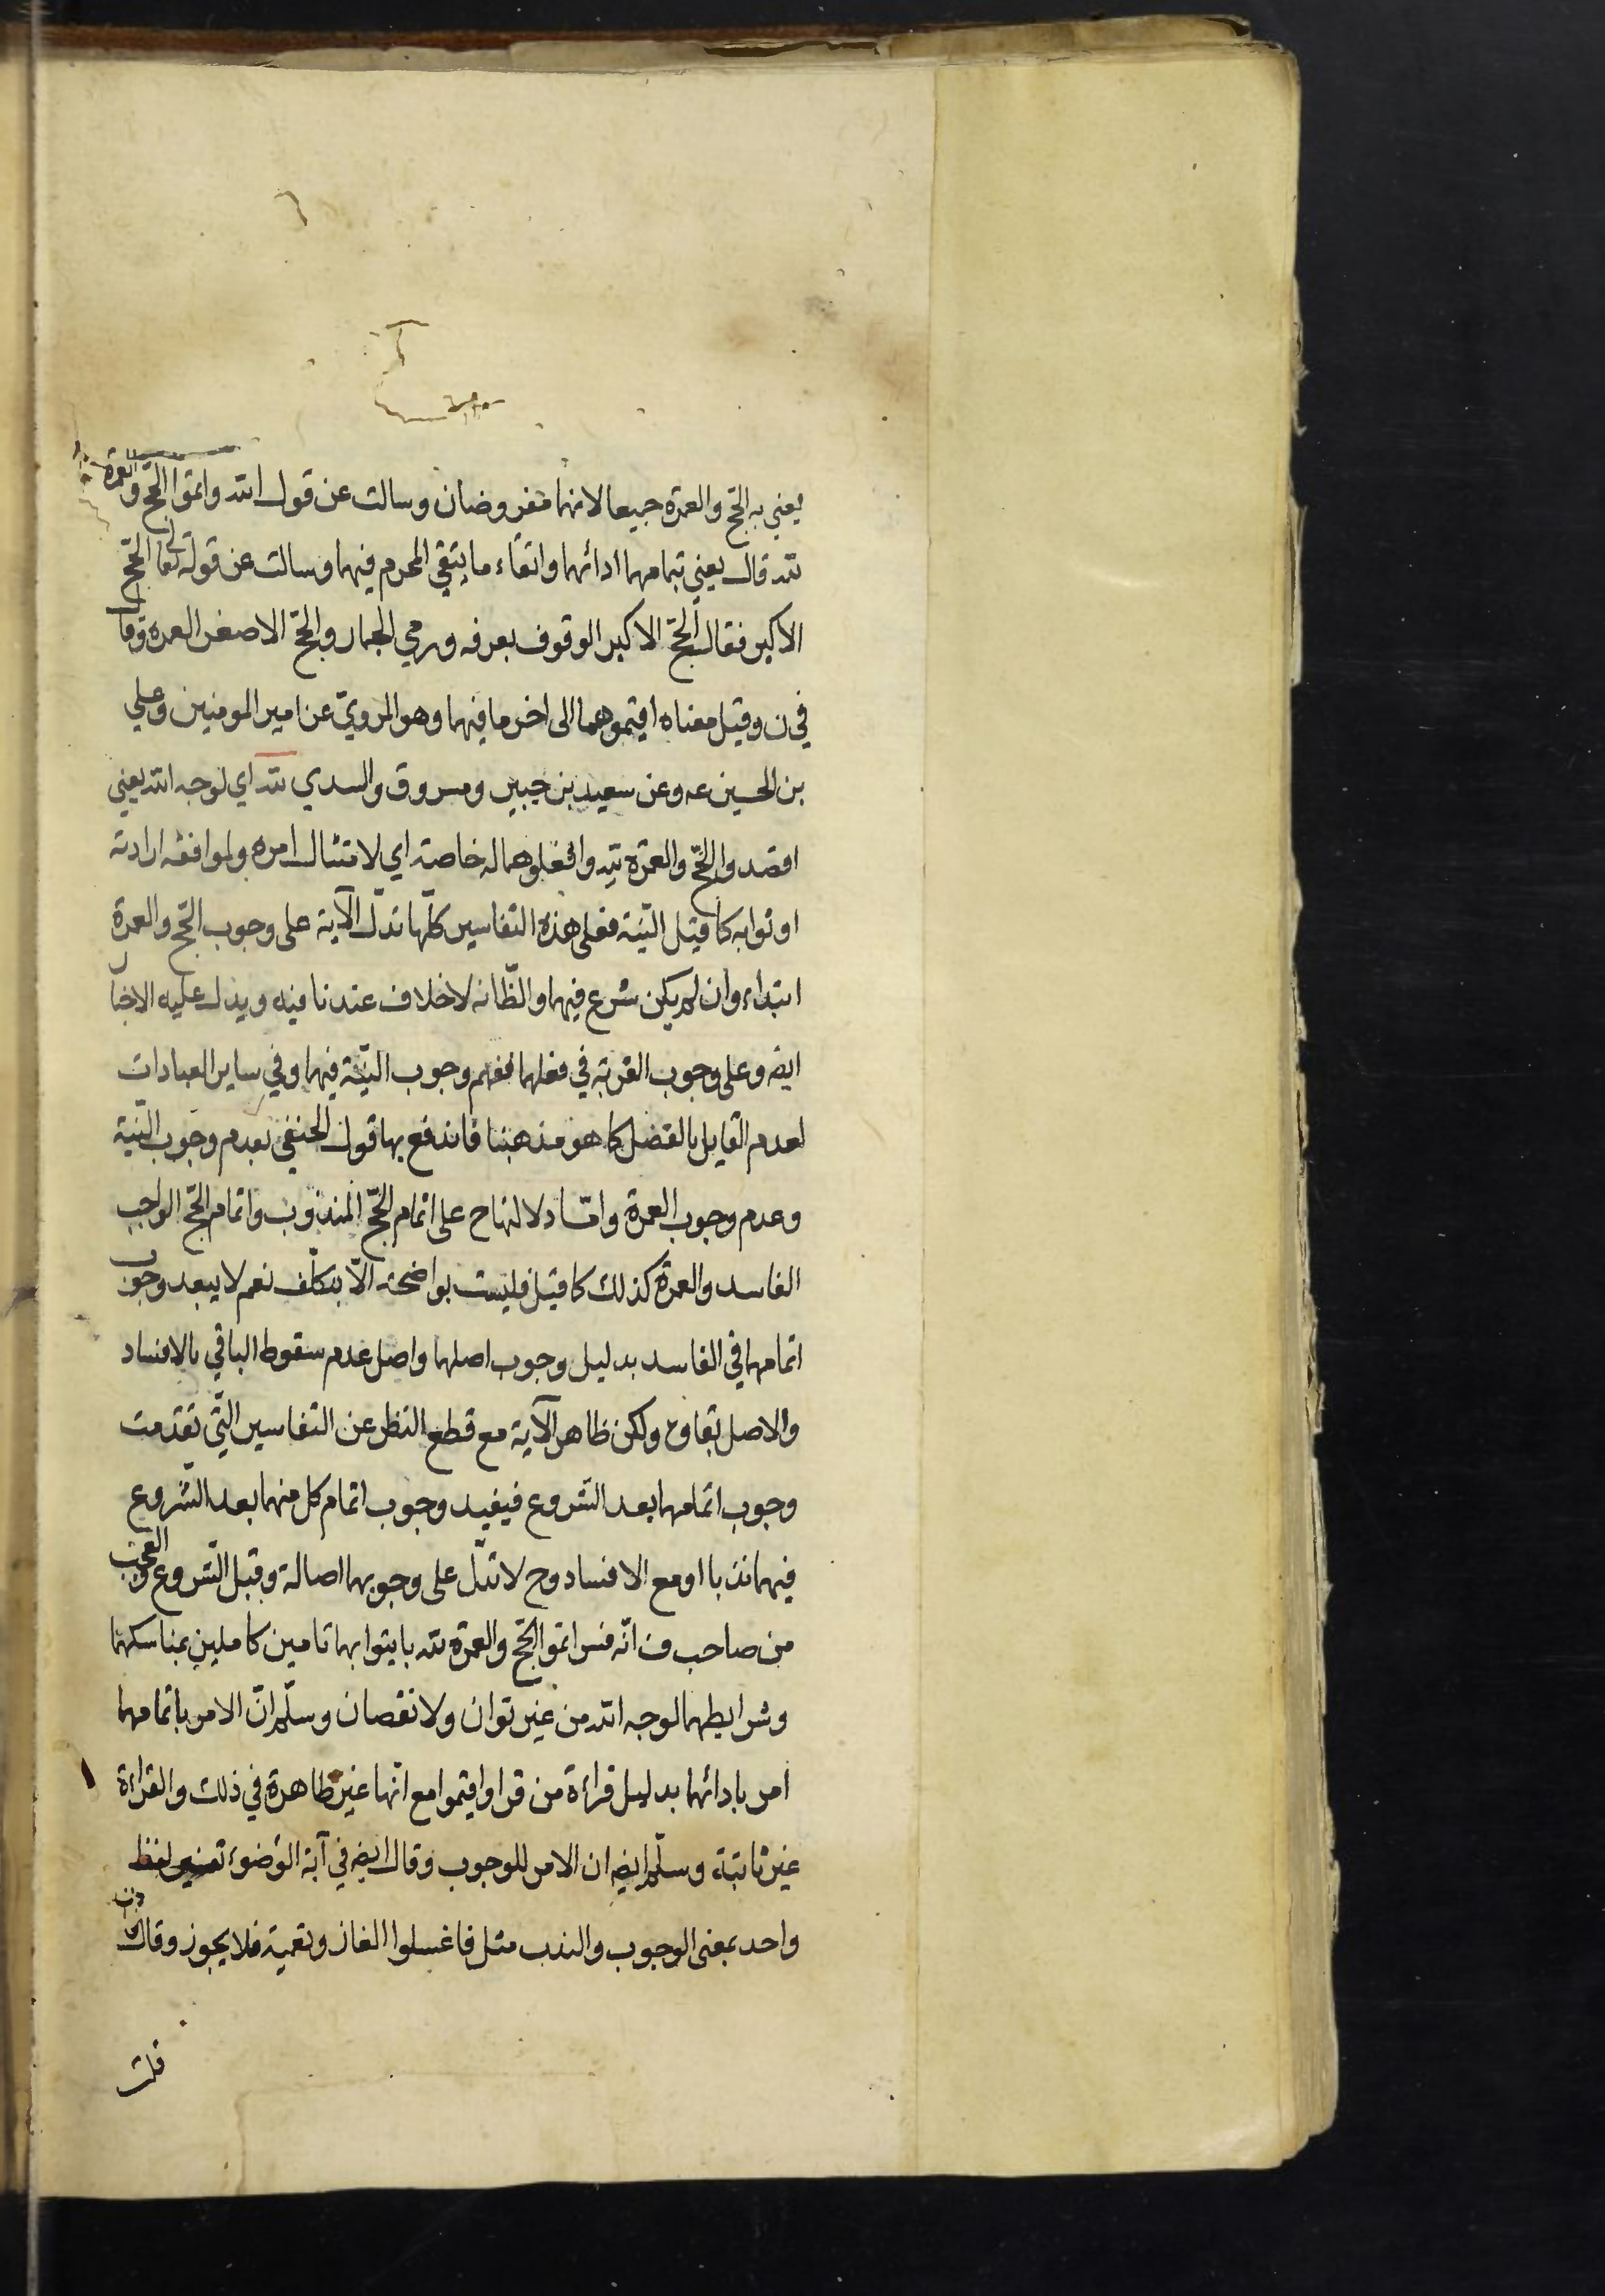 يعني به الحجّ والعمرة جميعا لانهما مفروضان وسالت عن قول الله واتموا الحجّ والعمرة
لله قال يعني بتمامهما ادائهما واتقاء ما يتقي المحرم فيهما وسالت عن قوله تعالى الحجّ
الاكبر فقال الحجّ الاكبر الوقوف بعرفه ورمي الجمار والحجّ الاصغر العمره وقال
في ن وقيل معناه اقيموهما الى اخر ما فيهما وهو المرويّ عن امير المومنين وعلي
بن الحسين عه وعن سعيد بن جبير ومسروق والسدي لله اي لوجه الله يعني
اقصدوا الحجّ والعمرة لله وافعلوهما له خاصة اي لامتثال امره ولموافقه ارادته
او ثوابه كما قيل النيّة فعلى هذه التفاسير كلّها تدلّ الآية على وجوب الحجّ والعمرة
ابتداء وان لم يكن شرع فيهما والظّ انه لا خلاف عندنا فيه ويدل عليه الاخبار
ايضه وعلى وجوب القربة في فعلهما ففهم وجوب النيّة فيهما وفي ساير العبادات
لعدم القايل بالفصل كما هو مذهبنا فاندفع بها قول الحنفي بعدم وجوب النيّة
وعدم وجوب العمرة وامّا دلالتها ح على اتمام الحجّ المندوب واتمام الحجّ الواجب
الفاسد والعمرة كذلك كما قيل فليست بواضحة الّا بتكلّف نعم لا يبعد وجوب
اتمامهما في الفاسد بدليل وجوب اصلهما واصل عدم سقوط الباقي بالافساد
والاصل بقاؤه ولكن ظاهر الآية مع قطع النظر عن التفاسير الّتي تقدّمت
وجوب اتمامهما بعد الشروع فيفيد وجوب اتمام كل منهما بعد الشّروع
فيهما ندبا او مع الافساد وح لا تدلّ على وجوبهما اصالة وقبل الشّروع والعجب
من صاحب ف انّه فسر اتموا الحجّ والعمرة لله بايتوا بهما تامين كاملين بمناسكهما
وشرايطهما لوجه الله من غير توان ولا نقصان وسلّم انّ الامر باتمامهما
امر بادائهما بدليل قراءة من قرا واقيموا مع انّها غير ظاهرة في ذلك والقراءة
غير ثابتة وسلّم ايضه ان الامر للوجوب وقال ايضه في آية الوضوء لفظ
واحد بمعنى الوجوب والندب مثل فاغسلوا الغاز وتعمية فلا يجوز وقال
قلت